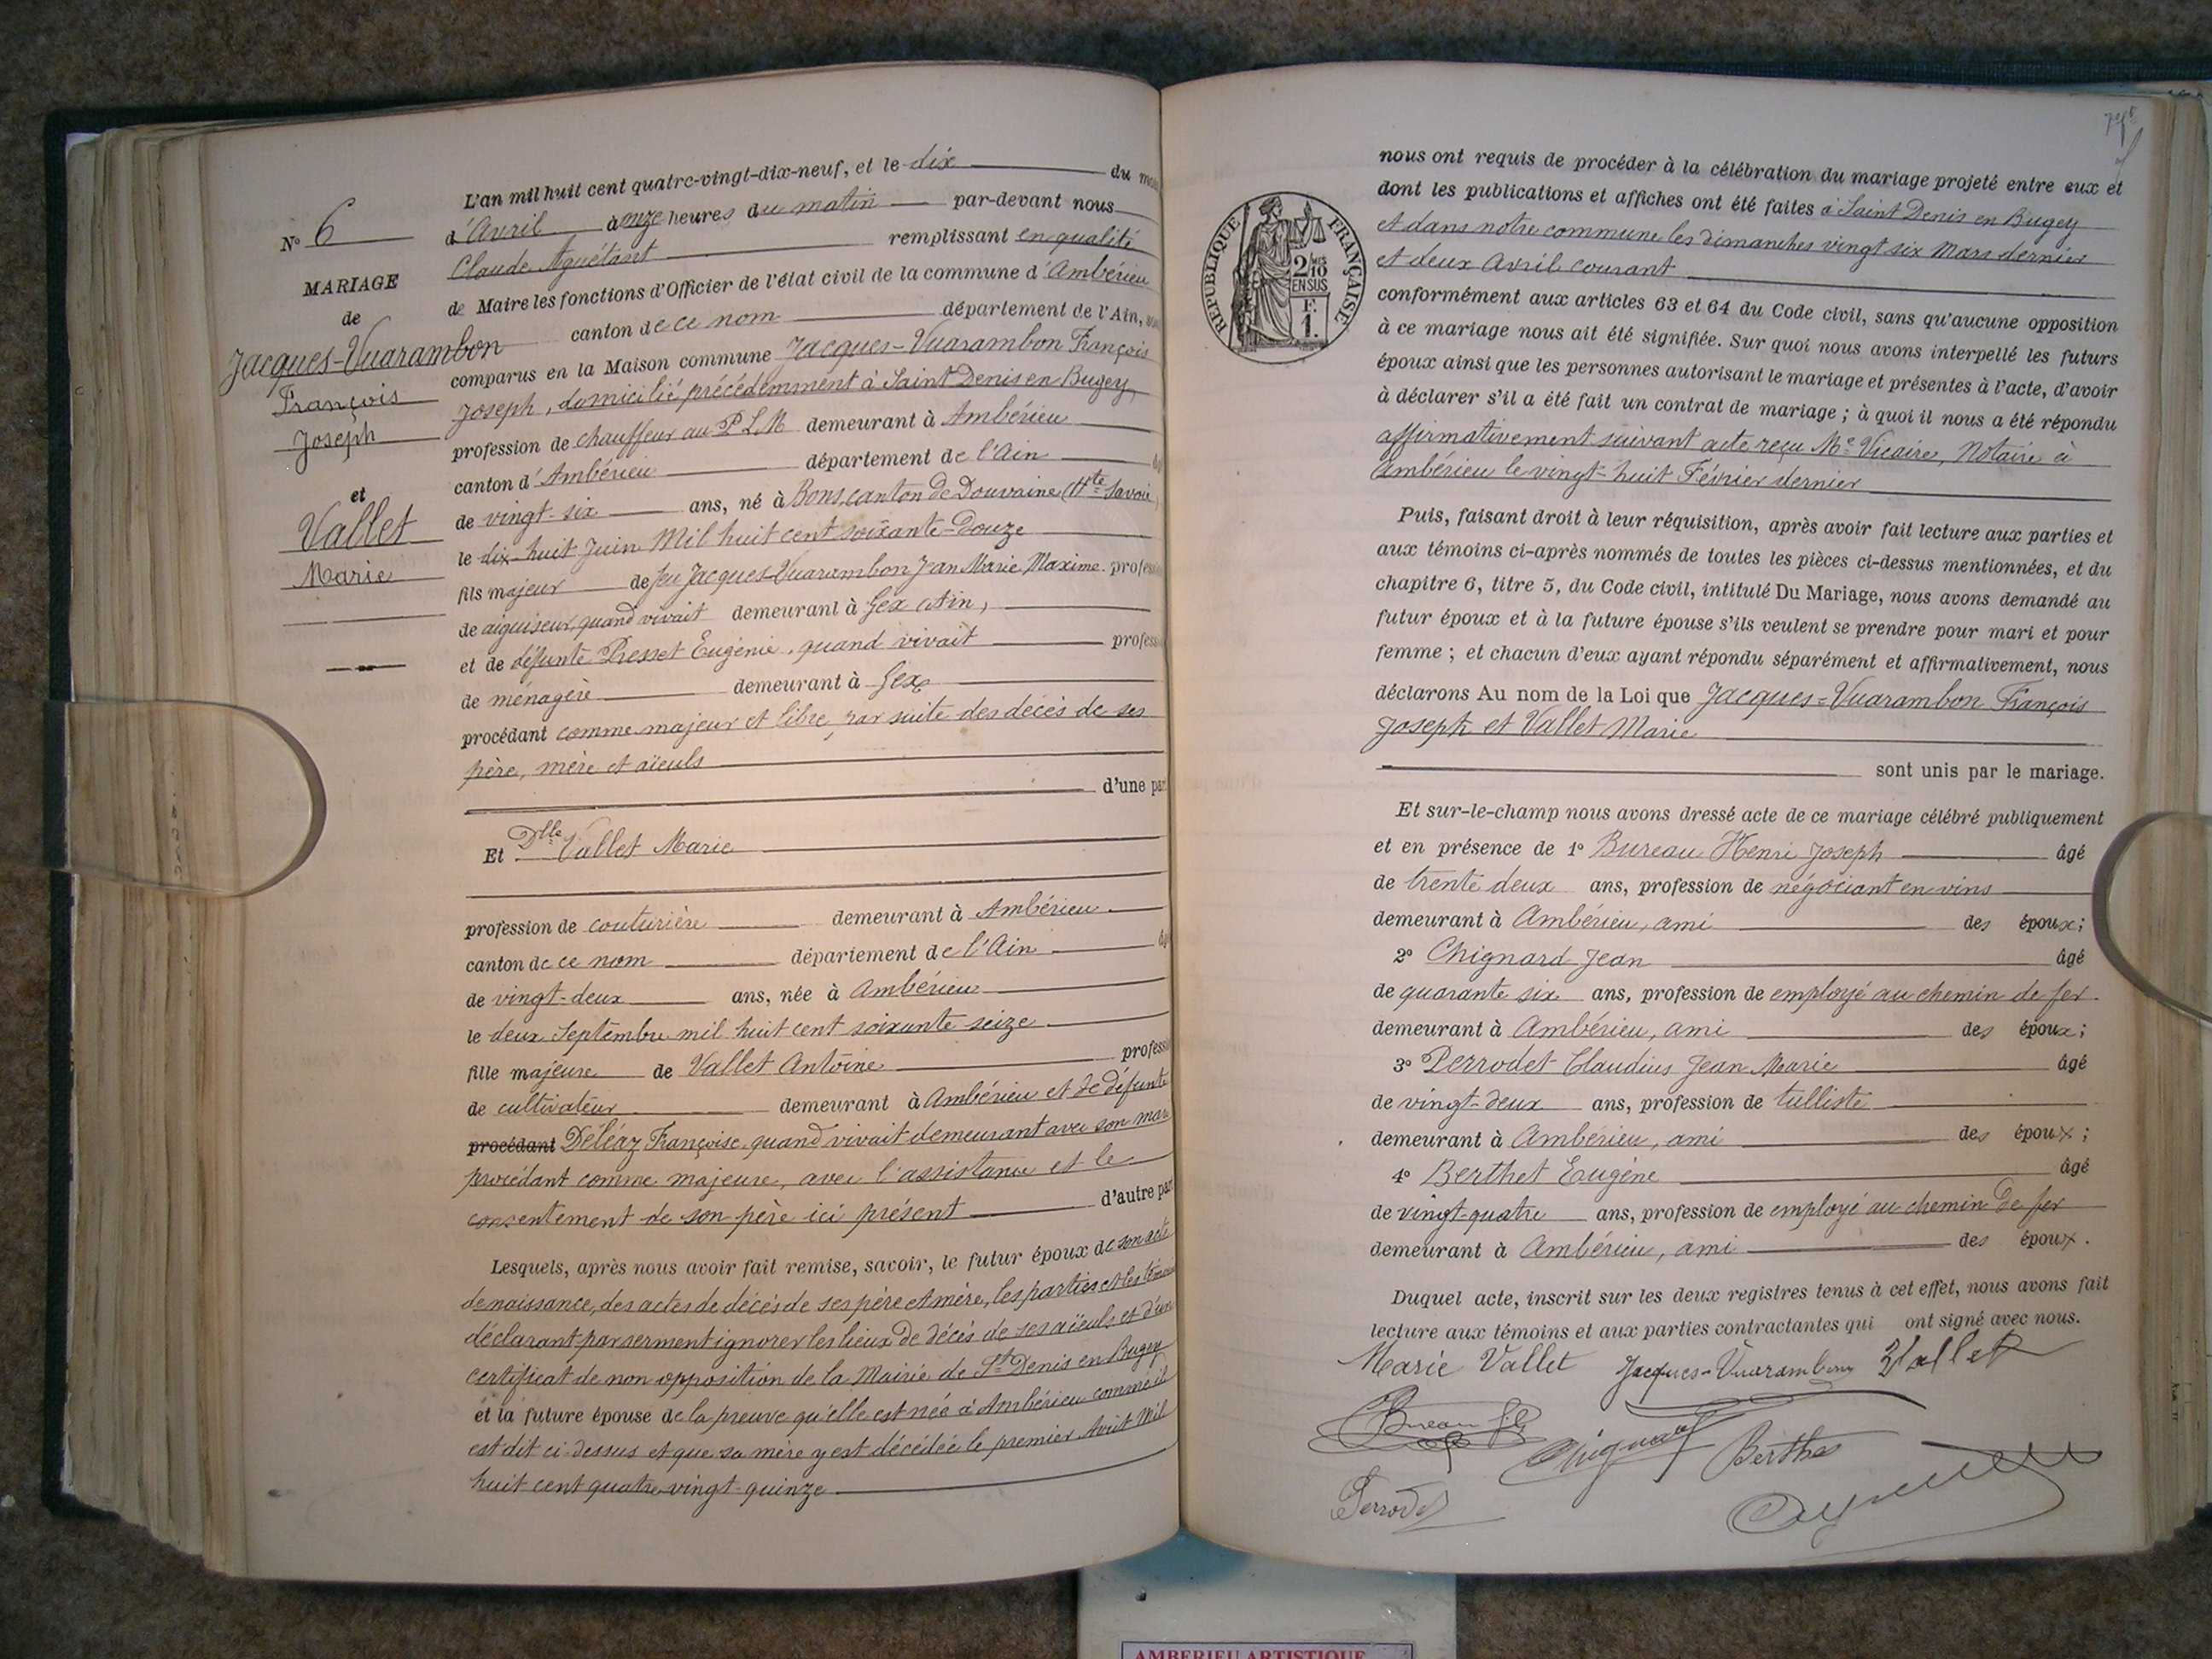 N° 6
MARIAGE
de
Jacques-Vuarambon
François
Joseph
et
Vallet
Marie
L'an mil huit cent quatre-vingt-dix-neuf, et le dix du
d'Avril à onze heures du matin par-devant nous
Claude Aguétant remplissant en qualité
de Maire les fonctions d'Officier de l'état civil de la commune d'Ambérieu
canton de ce nom département de l'Ain,
comparus en la Maison commune Jacques-Vuarambon François
Joseph, domicilié précédemment à Saint Denis en Bugey,
profession de chauffeur au P.L.M demeurant à Ambérieu
canton d'Ambérieu département de l'Ain
de vingt-six ans, né à Bons, canton de Douvaine (Hte Savoie)
le dix-huit Juin Mil huit cent soixante-douze
fils majeur de feu Jacques-Vuarambon Jean Marie Maxime
de aiguiseur, quand vivait demeurant à Gex Ain,
et de défunte Presset Eugénie, quand vivait
de ménagère demeurant à Gex
procédant comme majeur et libre, par suite des décès de ses
père, mère et aïeuls
d'une
Et Dlle Vallet Marie
profession de couturière demeurant à Ambérieu
canton de ce nom département de l'Ain
de vingt-deux ans, née à Ambérieu
le deux Septembre mil huit cent soixante seize
fille majeure de Vallet Antoine
de cultivateur demeurant à Ambérieu et de défunte
procédant Déléaz Françoise quand vivait demeurant avec son
procédant comme majeure, avec l'assistance et le
consentement de son père ici présent d'autre
Lesquels, après nous avoir fait remise, savoir, le futur époux de son acte
de naissance, des actes de décès de ses père et mère, les parties et les
déclarant par serment ignorer les lieux de décès de ses aïeuls et d'un
certificat de non opposition de la Mairie de St Denis en Bugey
et la future épouse de la preuve qu'elle est née à Ambérieu comme il
est dit ci-dessus et que sa mère y est décédée le premier Août Mil
huit cent quatre-vingt-quinze
RÉPUBLIQUE FRANÇAISE
2/10
EN SUS
F.
1.
nous ont requis de procéder à la célébration du mariage projeté entre eux et
dont les publications et affiches ont été faites à Saint Denis en Bugey
et dans notre commune les dimanches vingt six Mars dernier
et deux Avril courant
conformément aux articles 63 et 64 du Code civil, sans qu'aucune opposition
à ce mariage nous ait été signifiée. Sur quoi nous avons interpellé les futurs
époux ainsi que les personnes autorisant le mariage et présentes à l'acte, d'avoir
à déclarer s'il a été fait un contrat de mariage ; à quoi il nous a été répondu
affirmativement suivant acte reçu Me Vicaire, Notaire à
Ambérieu le vingt-huit Février dernier
Puis, faisant droit à leur réquisition, après avoir fait lecture aux parties et
aux témoins ci-après nommés de toutes les pièces ci-dessus mentionnées, et du
chapitre 6, titre 5, du Code civil, intitulé Du Mariage, nous avons demandé au
futur époux et à la future épouse s'ils veulent se prendre pour mari et pour
femme ; et chacun d'eux ayant répondu séparément et affirmativement, nous
déclarons Au nom de la Loi que Jacques-Vuarambon François
Joseph et Vallet Marie
sont unis par le mariage.
Et sur-le-champ nous avons dressé acte de ce mariage célébré publiquement
et en présence de 1° Bureau Henri Joseph âgé
de trente deux ans, profession de négociant en vins
demeurant à Ambérieu, ami des époux;
2° Chignard Jean âgé
de quarante six ans, profession de employé au chemin de fer
demeurant à Ambérieu, ami des époux;
3° Perrodet Claudius Jean Marie âgé
de vingt-deux ans, profession de tulliste
demeurant à Ambérieu, ami des époux;
4° Berthet Eugène âgé
de vingt-quatre ans, profession de employé au chemin de fer
demeurant à Ambérieu, ami des époux.
Duquel acte, inscrit sur les deux registres tenus à cet effet, nous avons fait
lecture aux témoins et aux parties contractantes qui ont signé avec nous.
Marie Vallet Jacques-Vuarambon Vallet
Bureau fils Chignard Berthet
Perrodet
AMBERIEU ARTISTIQUE